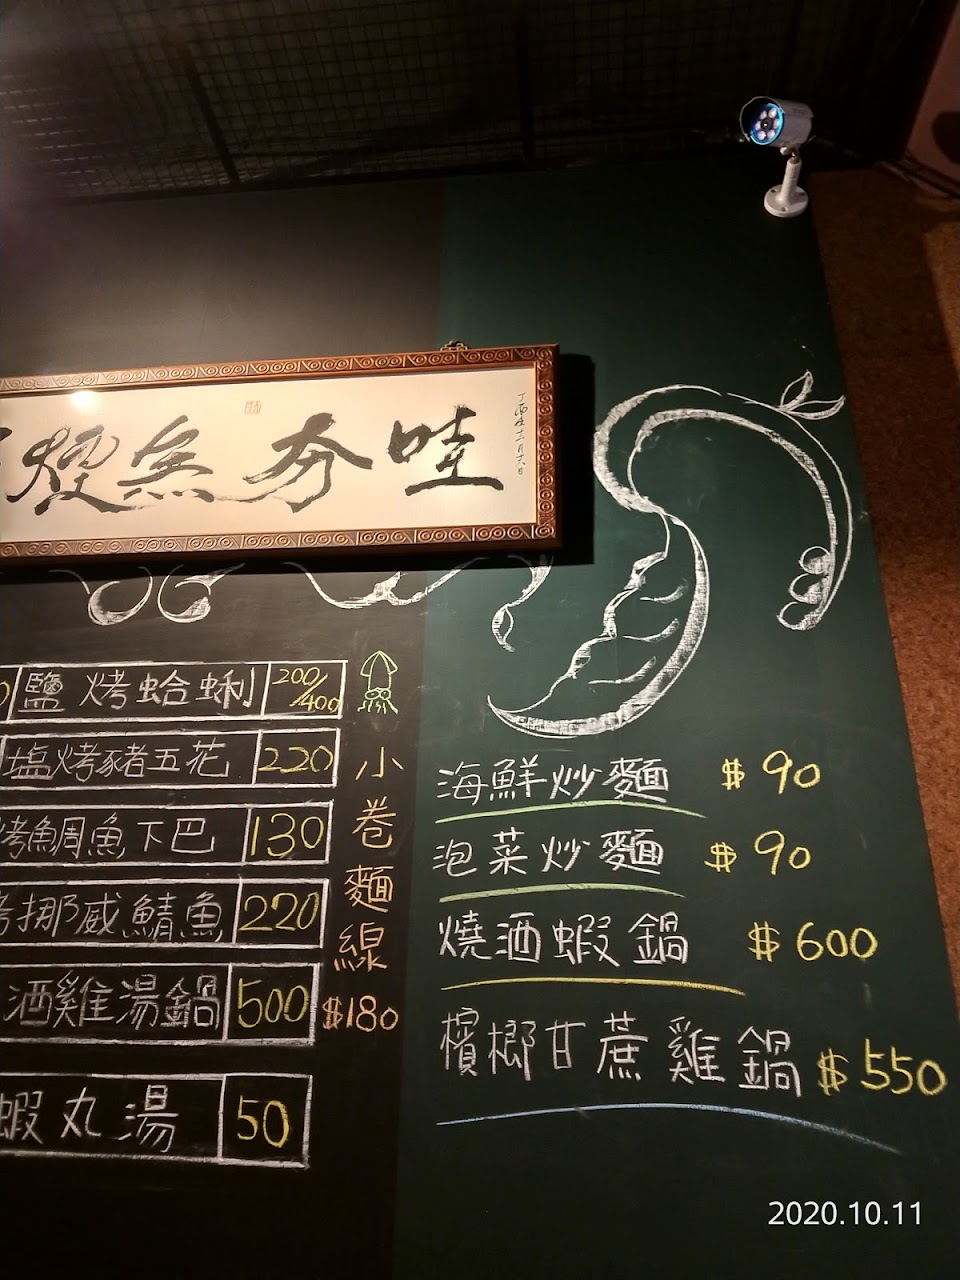 哇夯無煙
丁酉年十一月十六日
鹽烤蛤蜊 200/400
塩烤豬五花 220
烤鯛魚下巴 130
烤挪威鯖魚 220
酒雞湯鍋 500
蝦丸湯 50
小卷麵線
$180
海鮮炒麵 $90
泡菜炒麵 $90
燒酒蝦鍋 $600
檳榔甘蔗雞鍋 $550
2020.10.11